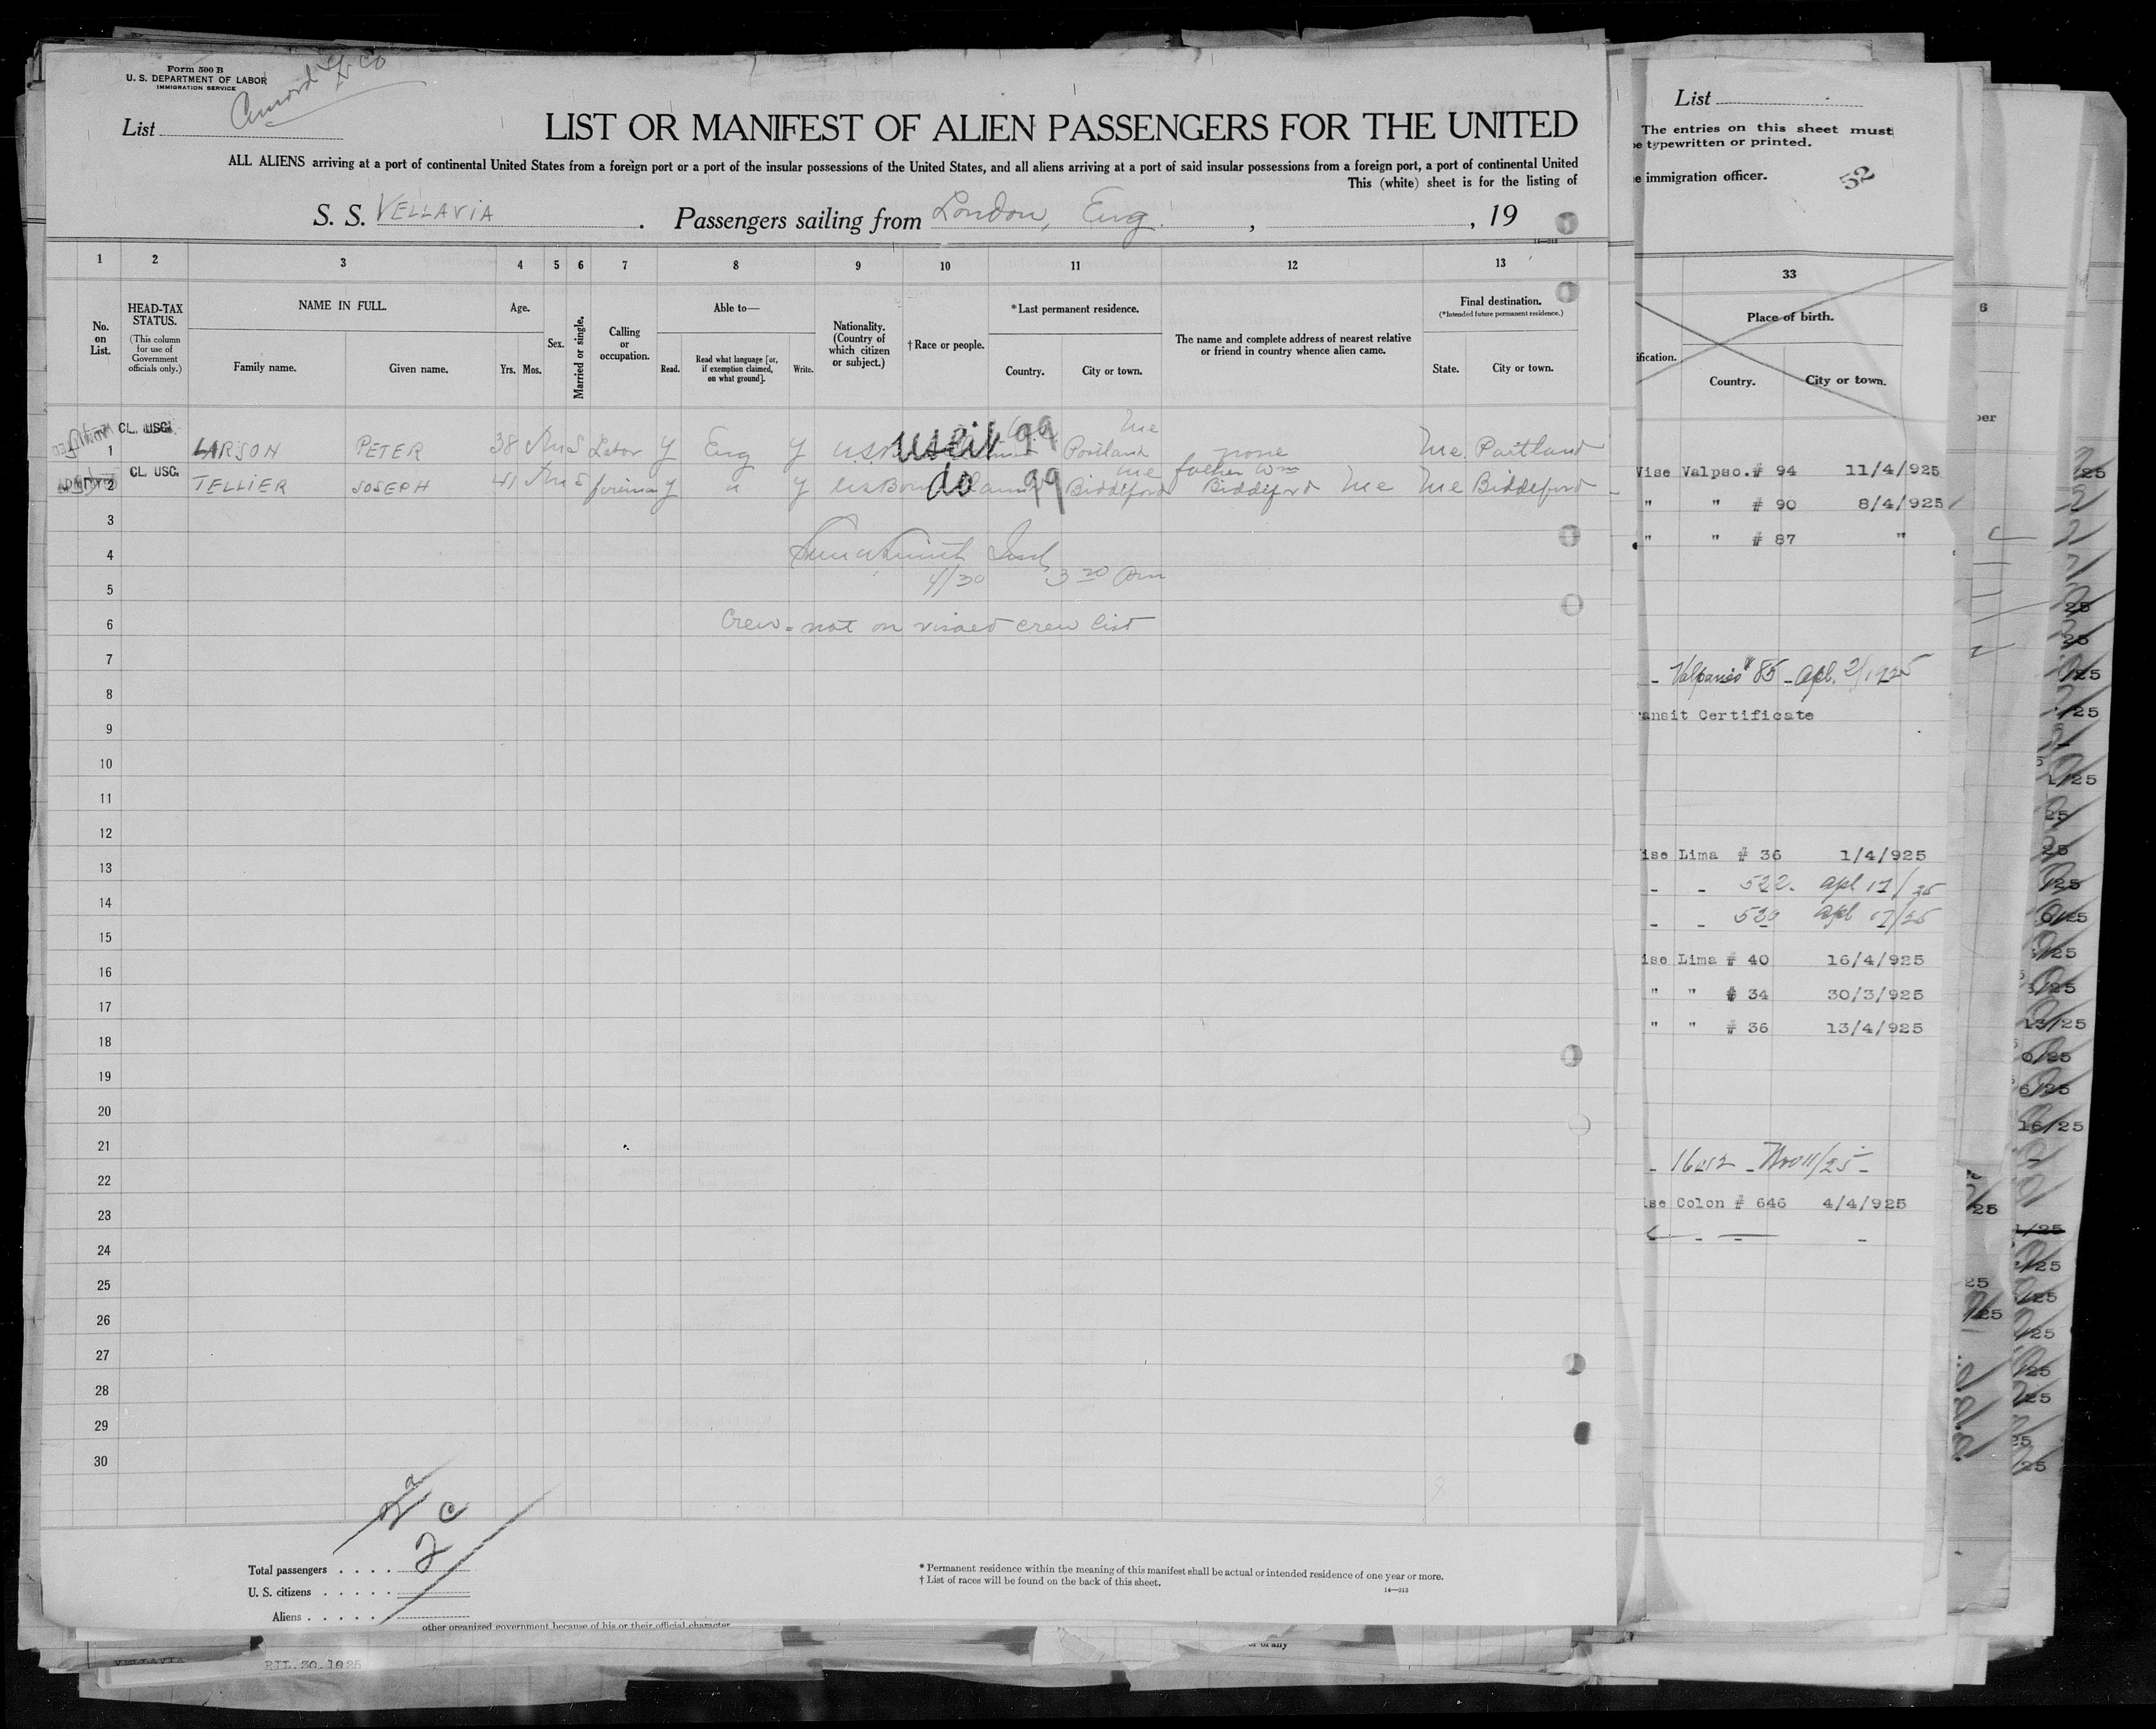 Form 500 B
U. S. DEPARTMENT OF LABOR
IMMIGRATION SERVICE
List
LIST OR MANIFEST OF ALIEN PASSENGERS FOR THE UNITED
ALL ALIENS arriving at a port of continental United States from a foreign port or a port of the insular possessions of the United States, and all aliens arriving at a port of said insular possessions from a foreign port, a port of continental United
This (white) sheet is for the listing of
S. S. VELLAVIA . Passengers sailing from London, Eng. , , 19
14—313
1 2 3 4 5 6 7 8 9 10 11 12 13
No. on List.
HEAD-TAX STATUS.
(This column for use of Government officials only.)
NAME IN FULL.
Family name. Given name.
Age.
Yrs. Mos.
Sex.
Married or single.
Calling or occupation.
Able to—
Read. Read what language [or, if exemption claimed, on what ground]. Write.
Nationality. (Country of which citizen or subject.)
†Race or people.
*Last permanent residence.
Country. City or town.
The name and complete address of nearest relative or friend in country whence alien came.
Final destination.
(*Intended future permanent residence.)
State. City or town.
ADMITTED CL. USC. Me
1 LARSON PETER 38 M S Labor Y Eng Y USB 99 Portland none Me. Portland
ADMITTED CL. USC. Me father Wm
2 TELLIER JOSEPH 41 M S fireman Y " Y USBorn do 99 Biddeford Biddeford Me Me Biddeford
3
4
4/30 3 20 Pm
5
6 Crew - not on visaed crew list
7
8
9
10
11
12
13
14
15
16
17
18
19
20
21
22
23
24
25
26
27
28
29
30
2 c
Total passengers . . . . 2
U. S. citizens . . . . .
Aliens . . . . .
* Permanent residence within the meaning of this manifest shall be actual or intended residence of one year or more.
† List of races will be found on the back of this sheet.
14—313
other organized government because of his or their official character
or of any
VELLAVIA RIL.30.1925
List
The entries on this sheet must
be typewritten or printed.
e immigration officer.
52
33
Place of birth.
ification.
Country. City or town.
Vise Valpso.# 94 11/4/925
" " # 90 8/4/925
" " # 87 "
- Valparaiso # 85 - Apl. 2/1925
ansit Certificate
ise Lima # 36 1/4/925
- - 522. Apl 17/25
- - 530 Apl 17/25
ise Lima # 40 16/4/925
" " # 34 30/3/925
" " # 36 13/4/925
- 16412 - Nov 11/25 -
ise Colon # 646 4/4/925
6
ber